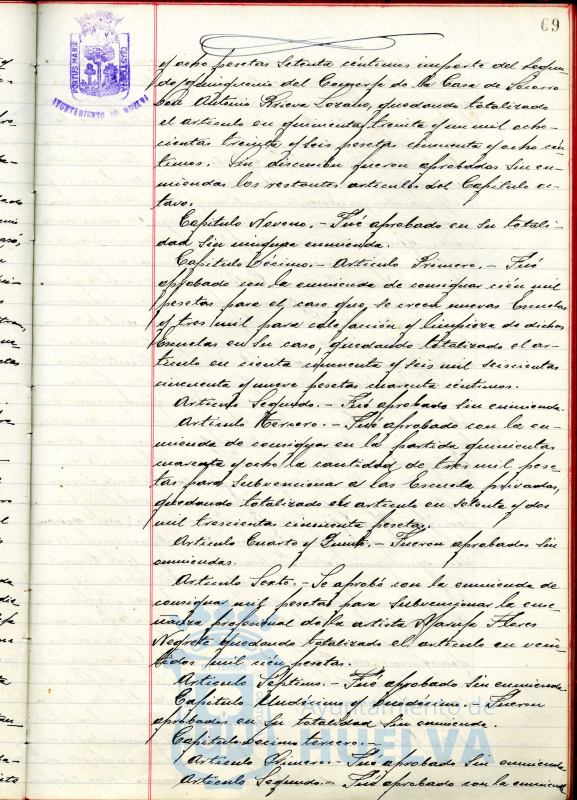 69
PORTUS MARIS
CUSTODIA
AYUNTAMIENTO DE HUELVA
y ocho pesetas setenta céntimos importe del segun-
do quinquenio del Conserje de la Casa de Socorro
Don Antonio Lozano, quedando totalizado
el artículo en quinientas treinta y un mil ocho-
cientas treinta y seis pesetas cincuenta y ocho cén-
timos. Sin discusión fueron aprobados sin en-
miendas los restantes artículos del Capítulo oc-
tavo.
Capítulo Noveno.- Fué aprobado en su totali-
dad sin ninguna enmienda.
Capítulo Décimo.- Artículo Primero.- Fué
aprobado con la enmienda de consignar cien mil
pesetas para el caso que se creen nuevas Escuelas
y tres mil para calefacción y limpieza de dichas
Escuelas en su caso, quedando totalizado el ar-
tículo en ciento cincuenta y seis mil seiscientas
cincuenta y nueve pesetas cuarenta céntimos.
Artículo Segundo.- Fué aprobado sin enmienda.
Artículo Tercero.- Fué aprobado con la en-
mienda de consignar en la partida quinientas
cuarenta y ocho la cantidad de tres mil pese-
tas para subvencionar a las Escuelas privadas,
quedando totalizado el artículo en setenta y dos
mil trescientas cincuenta pesetas.
Artículo Cuarto y Quinto.- Fueron aprobados sin
enmiendas.
Artículo Sexto.- Se aprobó con la enmienda de
consignar mil pesetas para subvencionar la ense-
ñanza profesional de la artista Flores
Negrete quedando totalizado el artículo en vein-
tidos mil cien pesetas.
Artículo Séptimo.- Fué aprobado sin enmienda
Capítulo Undécimo y Duodécimo.- Fueron
aprobados en su totalidad sin enmienda.
Capítulo décimo tercero.-
Artículo Primero.- Fué aprobado sin enmienda
Artículo Segundo.- Fué aprobado con la enmienda
Ayuntamiento de
HUELVA